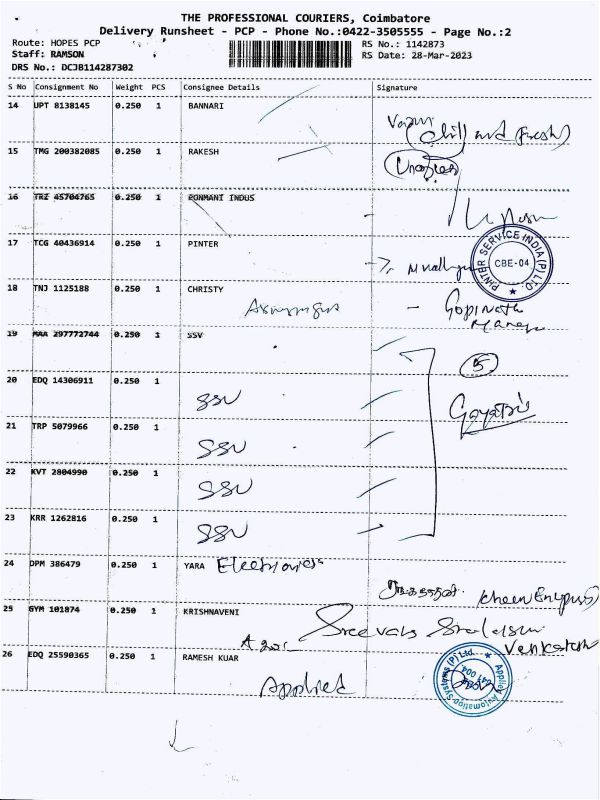 THE PROFESSIONAL COURIERS, Coimbatore
Delivery Runsheet - PCP - Phone No.:0422-3505555 - Page No.:2
Route: HOPES PCP
RS No.: 1142873
Staff: RAMSON
RS Date: 28-Mar-2023
DRS No.: DCJB114287302
S No Consignment No Weight PCS Consignee Details Signature
14 UPT 8138145 0.250 1 BANNARI
15 TMG 200382085 0.250 1 RAKESH
16 TRZ 45704765 0.250 1 PONMANI INDUS
17 TCG 40436914 0.250 1 PINTER
PINTER SERVICE INDIA (P) LTD. CBE-04
18 TNJ 1125188 0.250 1 CHRISTY
Gopinath
Manager
19 MAA 297772744 0.250 1 SSV
5
20 EDQ 14306911 0.250 1
SSV
Gayatri
21 TRP 5079966 0.250 1
SSV
22 KVT 2804990 0.250 1
SSV
23 KRR 1262816 0.250 1
SSV
24 DPM 386479 0.250 1 YARA Electronics
25 GYM 101874 0.250 1 KRISHNAVENI
Venkatesh
26 EDQ 25590365 0.250 1 RAMESH KUAR
Applied
Applied Automation Systems (P) Ltd.